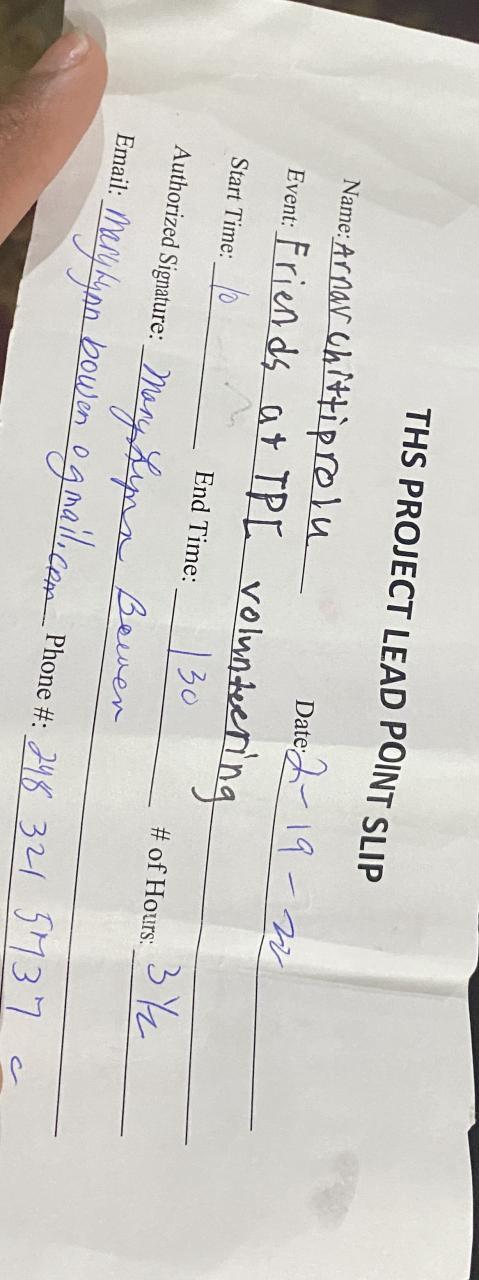 THS PROJECT LEAD POINT SLIP
Name: Arnav chittiprolu Date: 2-19-22
Event: Friends at TPL volunteering
Start Time: 10 End Time: 130 # of Hours: 3 1/2
Authorized Signature: Mary Lynn Bowen
Email: marylynn bowen @gmail.com Phone #: 248 321 5737 c